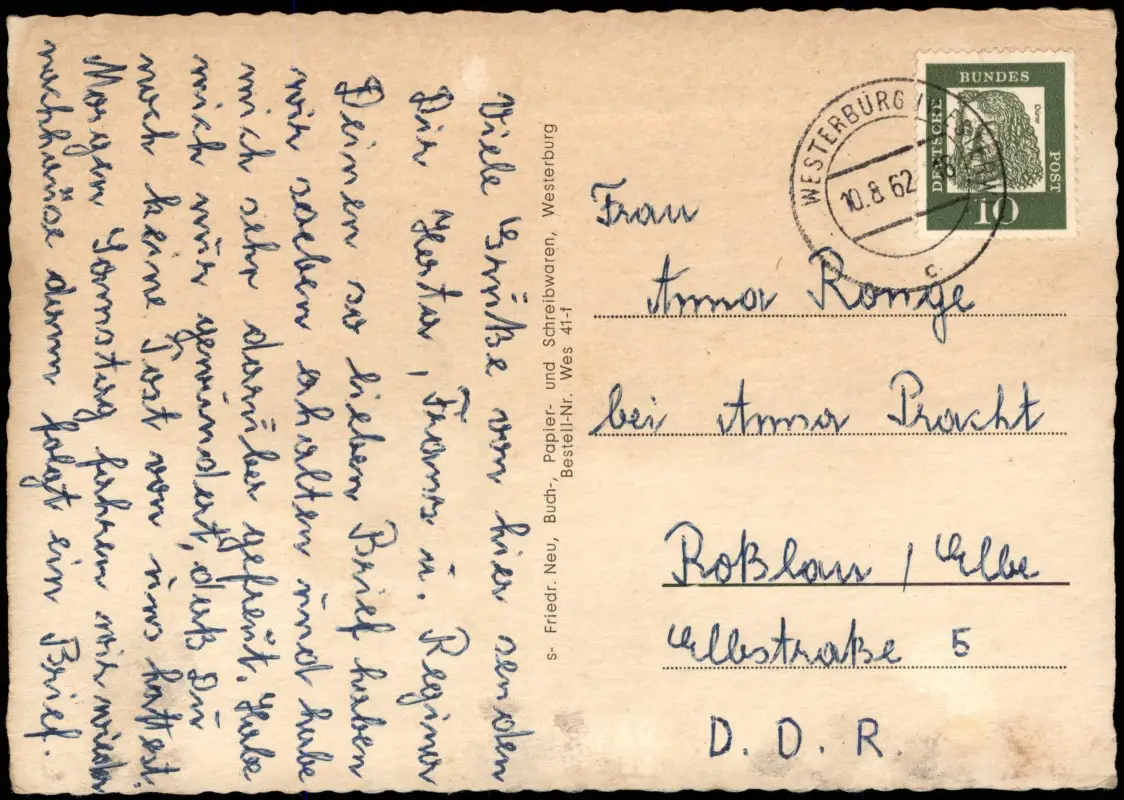 Viele Grüße von hier senden
Dir Herta, Franz u. Regina
Deinen so lieben Brief haben
wir soeben erhalten und habe
mich sehr darüber gefreut. Habe
mich nur gewundert, daß Du
noch keine Post von uns hattest.
Morgen Samstag fahren wir wieder
nachhause dann folgt ein Brief.
s- Friedr. Neu, Buch-, Papier- und Schreibwaren, Westerburg
Bestell-Nr. Wes 41-f
WESTERBURG (WESTERW)
10.8.62
c
DEUTSCHE BUNDES POST
Dürer
10
Frau
Anna Ronge
bei Anna Pracht
Roßlau / Elbe
Elbstraße 5
D. D. R.